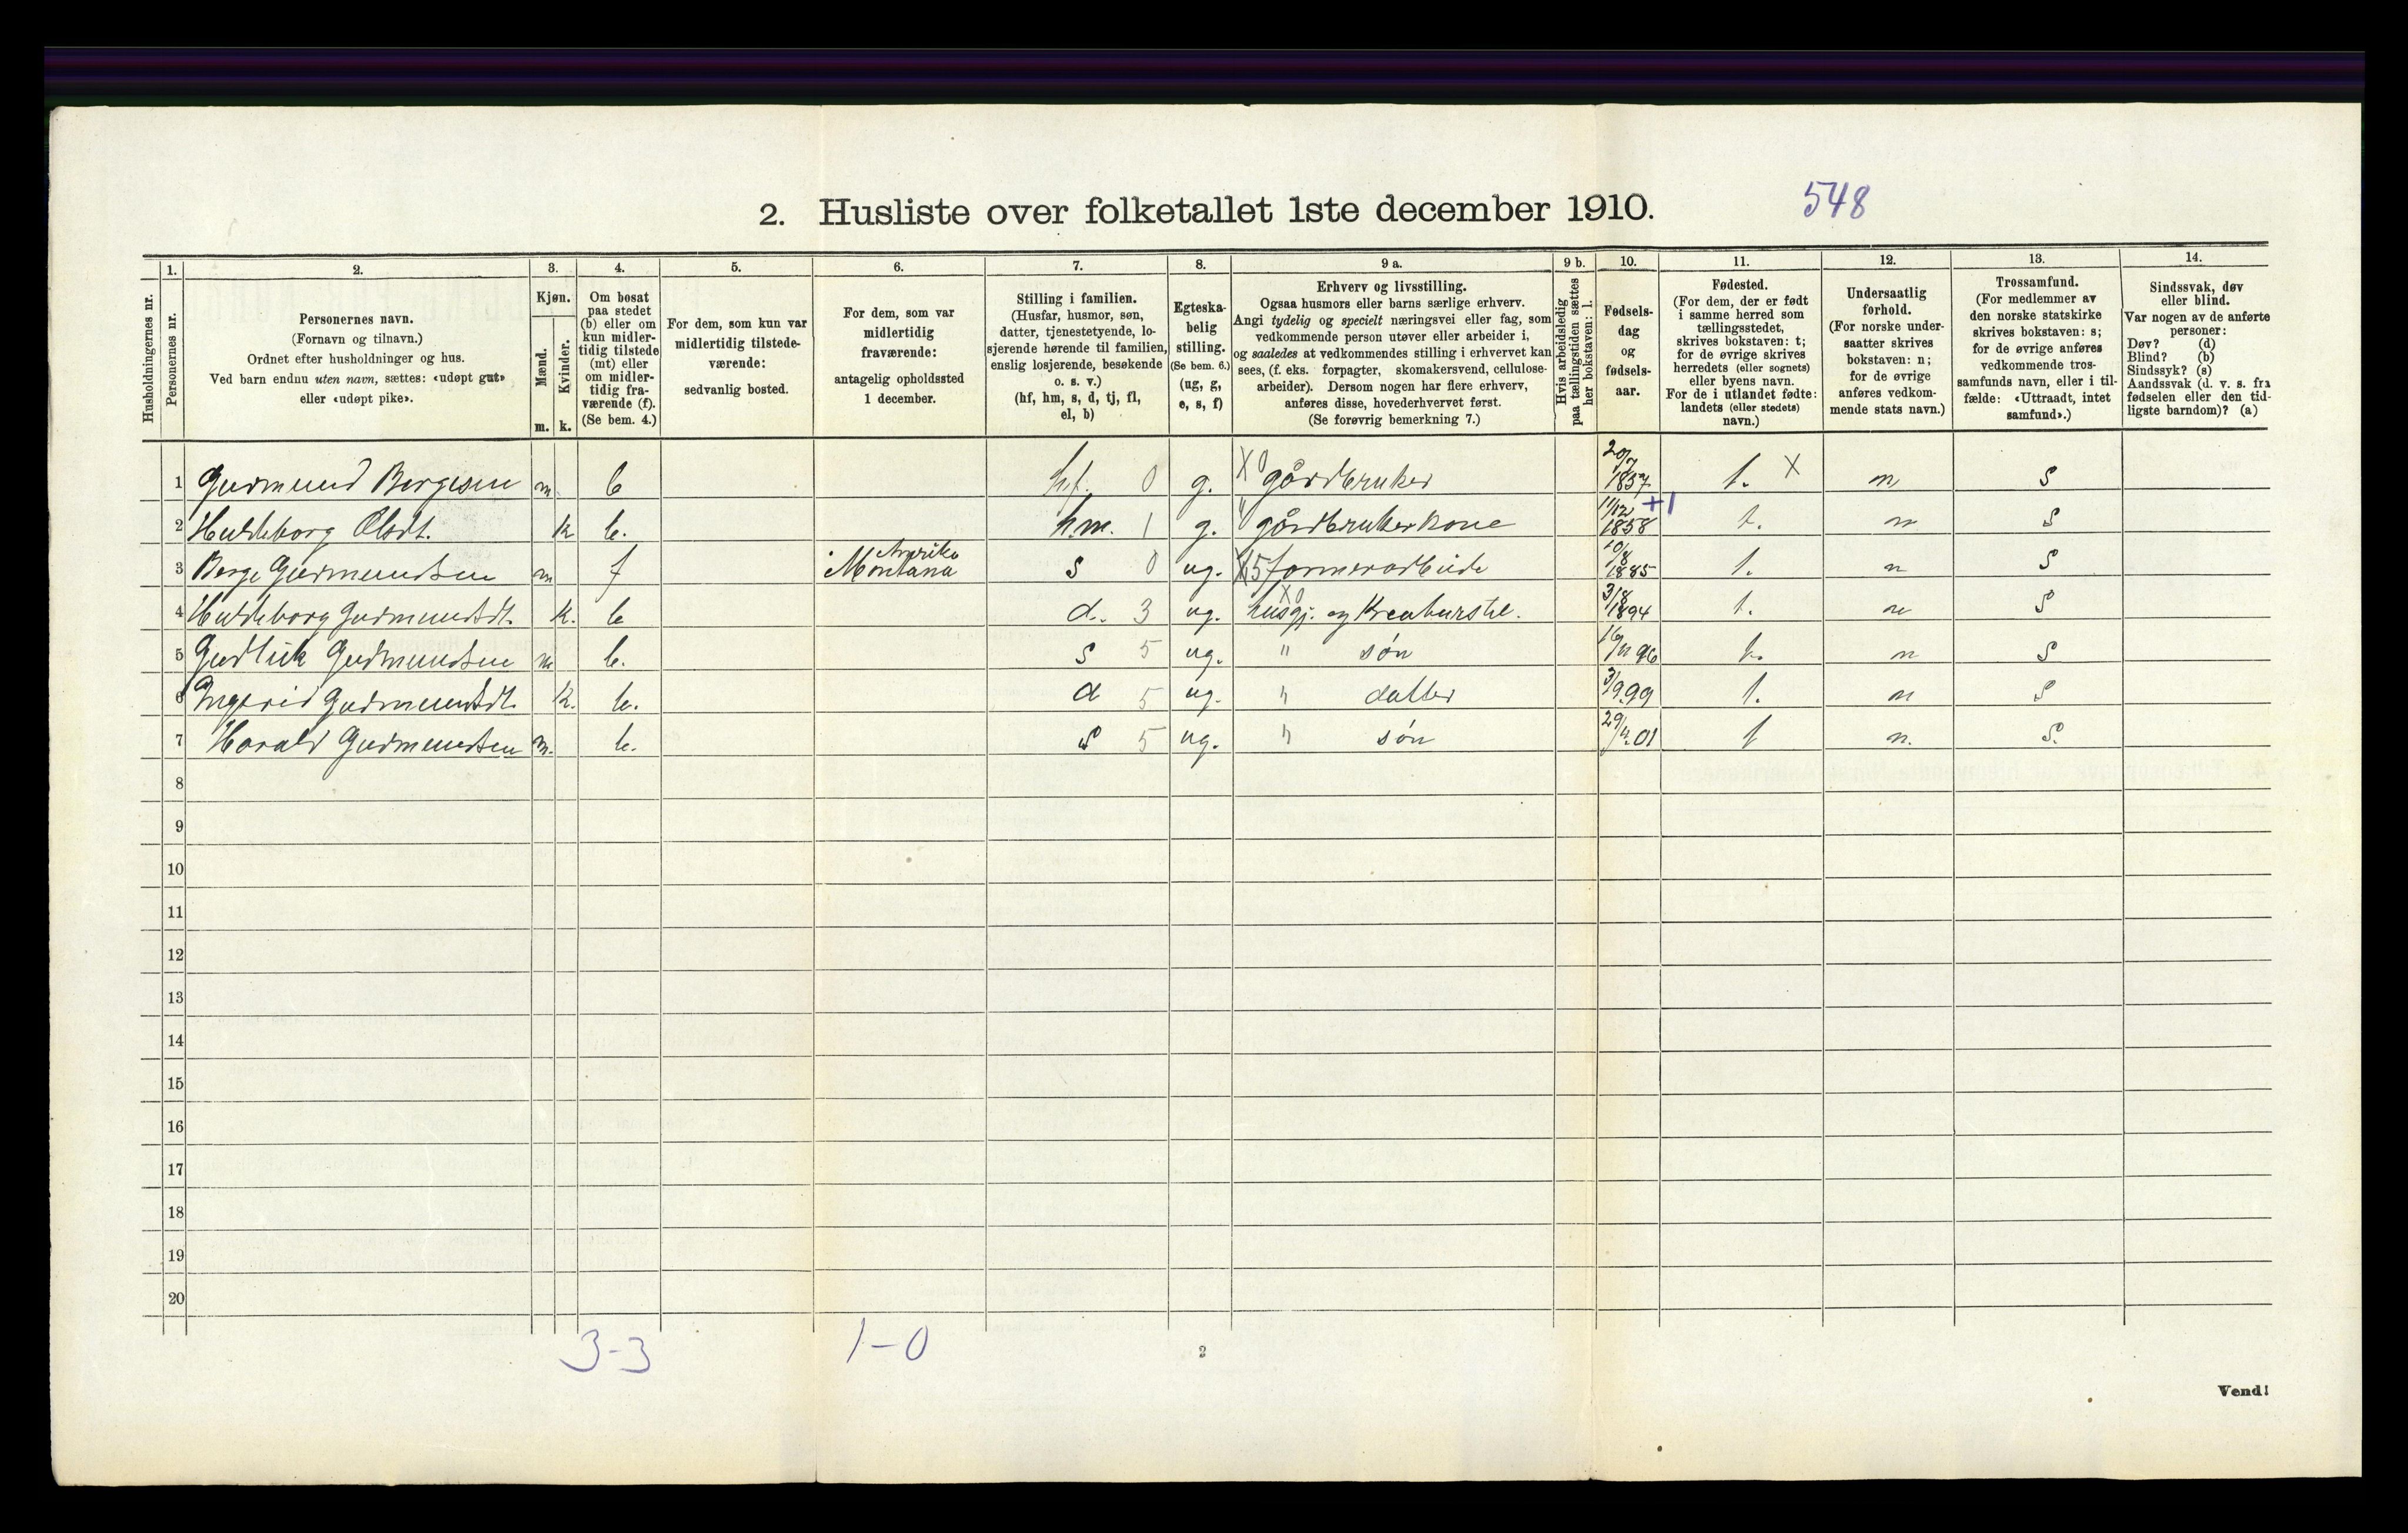 2. Husliste over folketallet 1ste december 1910.
548
Husholdningernes nr.
1.
Personernes nr.
2.
Personernes navn.
(Fornavn og tilnavn.)
Ordnet efter husholdninger og hus.
Ved barn endnu uten navn, sættes: «udøpt gut»
eller «udøpt pike».
3.
Kjøn.
Mænd.
Kvinder.
m. k.
4.
Om bosat
paa stedet
(b) eller om
kun midler-
tidig tilstede
(mt) eller
om midler-
tidig fra-
værende (f).
(Se bem. 4.)
5.
For dem, som kun var
midlertidig tilstede-
værende:
sedvanlig bosted.
6.
For dem, som var
midlertidig
fraværende:
antagelig opholdssted
1 december.
7.
Stilling i familien.
(Husfar, husmor, søn,
datter, tjenestetyende, lo-
sjerende hørende til familien,
enslig losjerende, besøkende
o. s. v.)
(hf, hm, s, d, tj, fl,
el, b)
8.
Egteska-
belig
stilling.
(Se bem. 6.)
(ug, g,
e, s, f)
9 a.
Erhverv og livsstilling.
Ogsaa husmors eller barns særlige erhverv.
Angi tydelig og specielt næringsvei eller fag, som
vedkommende person utøver eller arbeider i,
og saaledes at vedkommendes stilling i erhvervet kan
sees, (f. eks. forpagter, skomakersvend, cellulose-
arbeider). Dersom nogen har flere erhverv,
anføres disse, hovederhvervet først.
(Se forøvrig bemerkning 7.)
9 b.
Hvis arbeidsledig
paa tællingstiden sættes
her bokstaven: l.
10.
Fødsels-
dag
og
fødsels-
aar.
11.
Fødested.
(For dem, der er født
i samme herred som
tællingsstedet,
skrives bokstaven: t;
for de øvrige skrives
herredets (eller sognets)
eller byens navn.
For de i utlandet fødte:
landets (eller stedets)
navn.)
12.
Undersaatlig
forhold.
(For norske under-
saatter skrives
bokstaven: n;
for de øvrige
anføres vedkom-
mende stats navn.)
13.
Trossamfund.
(For medlemmer av
den norske statskirke
skrives bokstaven: s;
for de øvrige anføres
vedkommende tros-
samfunds navn, eller i til-
fælde: «Uttraadt, intet
samfund».)
14.
Sindssvak, døv
eller blind.
Var nogen av de anførte
personer:
Døv? (d)
Blind? (b)
Sindssyk? (s)
Aandssvak (d. v. s. fra
fødselen eller den tid-
ligste barndom)? (a)
1 Gudmund Bergesen m b hf. 0 g. X 0 gårdbruker 20/7 1857 t. X n s
2 Huldeborg Olsdt. k b. hm. 1 g. " gårdbrukerkone 11/12 1858 +1 t. n s
3 Berge Gudmundsen m f Amerika Montana s 0 ug. farmerarbeide 10/8 1885 t. n s
4 Huldeborg Gudmundsdt. k. b d. 3 ug. X0 husgj. og Kreaturstel. 3/8 1894 t. n s
5 Gudleik Gudmundsen m b. s 5 ug. " søn 16/11 96 t. n s
6 Ingerid Gudmundsdt. k. b. d 5 ug. " datter 3/9 99 t. n s
7 Harald Gudmundsen m. b. s 5 ug. " søn 29/4 01 t n. s.
8
9
10
11
12
13
14
15
16
17
18
19
20
3-3
1-0
2
Vend!